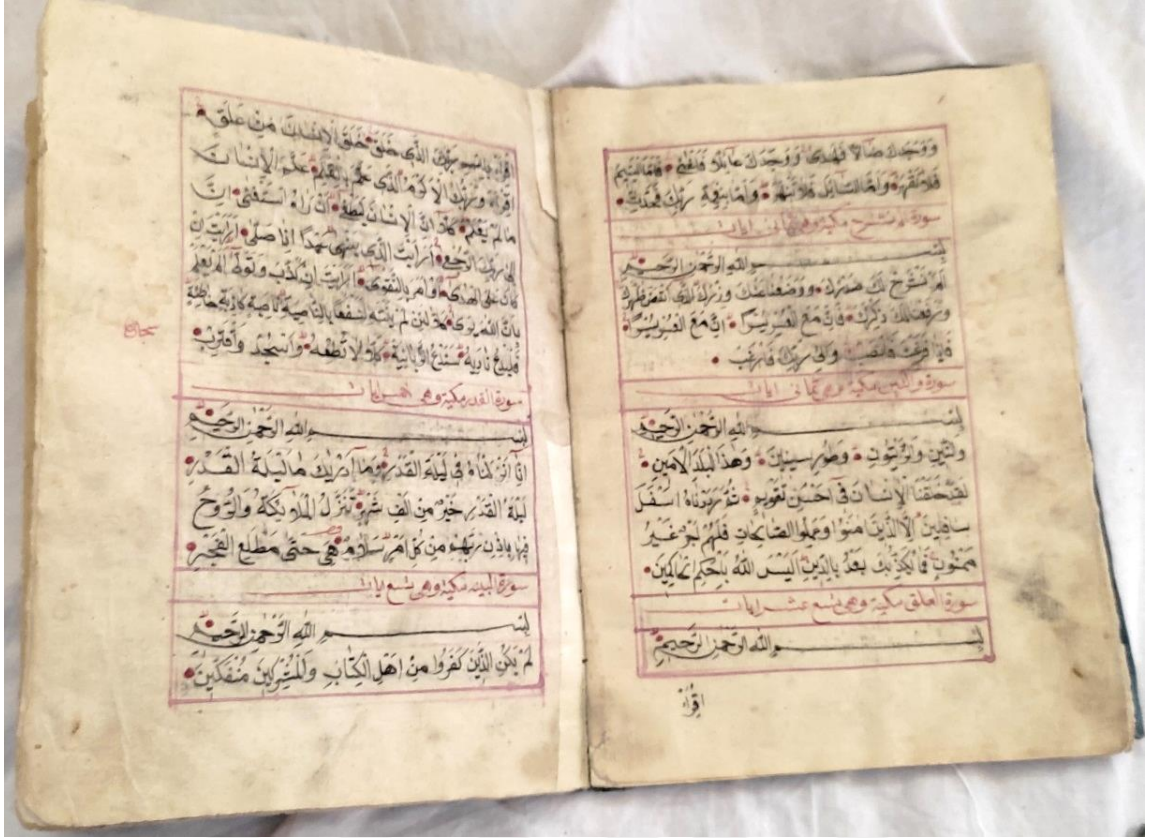 ووجدك ضالا فهدى ووجدك عائلا فاغنى فاما اليتيم
فلا تقهر واما السائل فلا تنهر واما بنعمة ربك فحدث
سورة الم نشرح مكية وهي ثماني ايات
بسم الله الرحمن الرحيم
الم نشرح لك صدرك ووضعنا عنك وزرك الذي انقض ظهرك
ورفعنا لك ذكرك فان مع العسر يسرا ان مع العسر يسرا
فاذا فرغت فانصب والى ربك فارغب
سورة والتين مكية وهي ثماني ايات
بسم الله الرحمن الرحيم
والتين والزيتون وطور سينين وهذا البلد الامين
لقد خلقنا الإنسان في احسن تقويم ثم رددناه اسفل
سافلين الا الذين امنوا وعملوا الصالحات فلهم اجر غير
ممنون فما يكذبك بعد بالدين اليس الله باحكم الحاكمين
سورة العلق مكية وهي تسع عشر ايات
بسم الله الرحمن الرحيم
اقرأ
اقرأ باسم ربك الذي خلق خلق الإنسان من علق
اقرأ وربك الاكرم الذي علم بالقلم علم الإنسان
ما لم يعلم كلا ان الإنسان ليطغى ان راه استغنى ان
الى ربك الرجعى ارايت الذي ينهى عبدا اذا صلى ارايت ان
كان على الهدى او امر بالتقوى ارايت ان كذب وتولى الم يعلم
بان الله يرى كلا لئن لم ينته لنسفعا بالناصية ناصية كاذبة خاطئة
فليدع ناديه سندع الزبانية كلا لا تطعه واسجد واقترب
سورة القدر مكية وهي خمس ايات
بسم الله الرحمن الرحيم
انا انزلناه في ليلة القدر وما ادريك ما ليلة القدر
ليلة القدر خير من الف شهر تنزل الملائكة والروح
فيها باذن ربهم من كل امر سلام هي حتى مطلع الفجر
سورة البينة مكية وهي تسع ايات
بسم الله الرحمن الرحيم
لم يكن الذين كفروا من اهل الكتاب والمشركين منفكين